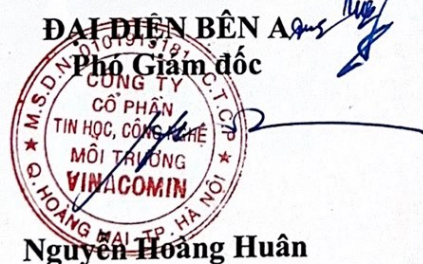 ĐẠI DIỆN BÊN A
Phó Giám đốc
M.S.D.N: 0101919181 - C.T.C.P
CÔNG TY
CỔ PHẦN
TIN HỌC, CÔNG NGHỆ
MÔI TRƯỜNG
VINACOMIN
Q. HOÀNG MAI - TP. HÀ NỘI
Nguyễn Hoàng Huân